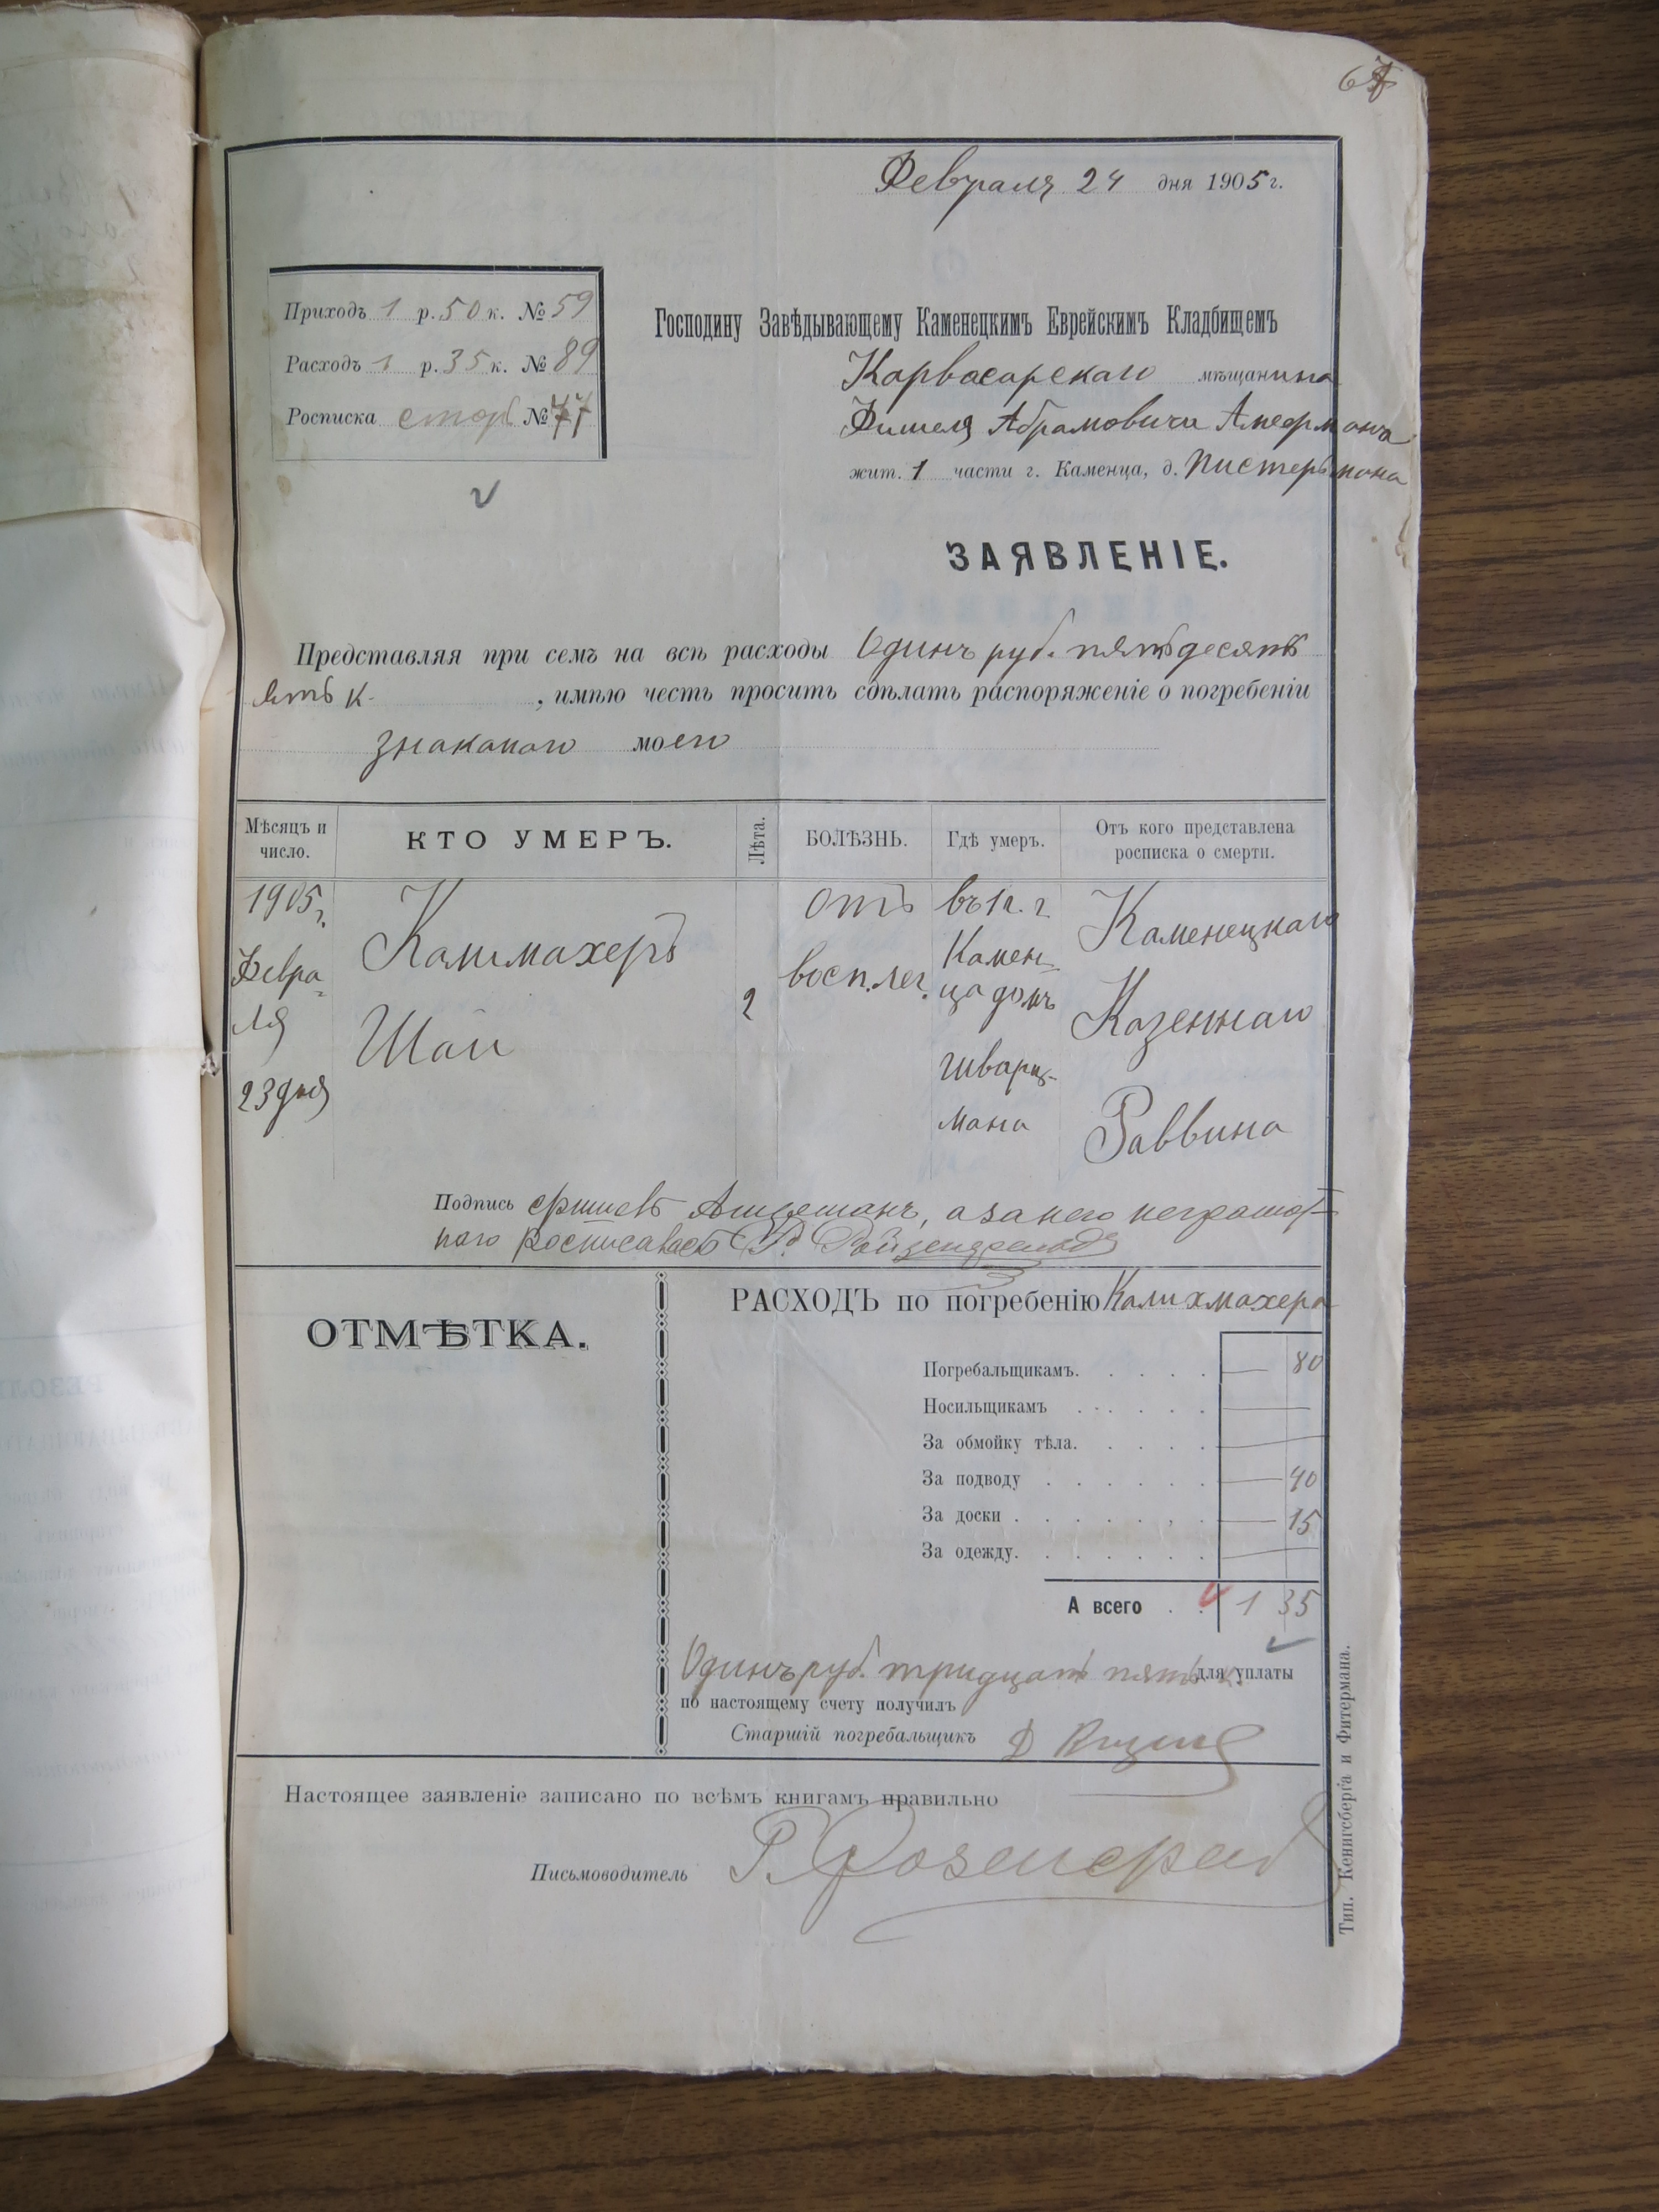 Февраля 24 дня 1905 г.
Приходъ 1 р. 50 к. № 59
Расходъ 1 р. 35 к. № 89
Росписка № 77
Господину Завѣдывающему Каменецкимъ Еврейскимъ Кладбищемъ
Карвасарскаго мѣщанина
Фишеля Абрамовича
жит. 1 части г. Каменца, д.
ЗАЯВЛЕНІЕ.
Представляя при семъ на всѣ расходы Одинъ руб. пятьдесятъ
к. , имѣю честь просить сдѣлать распоряженіе о погребеніи
знакомаго моего
Мѣсяцъ и число.
КТО УМЕРЪ.
Лѣта.
БОЛѢЗНЬ.
Гдѣ умеръ.
Отъ кого представлена росписка о смерти.
1905 г. Февраля 23 дня
Шаи
2
отъ восп. лег.
въ 1 ч. г. Каменца домъ Шварцмана
Каменецкаго Казеннаго Раввина
Подпись а за него неграмот-
наго росписался
ОТМѢТКА.
РАСХОДЪ по погребенію Калихмахера
Погребальщикамъ. — 80
Носильщикамъ —
За обмойку тѣла. —
За подводу — 40
За доски — 15
За одежду. —
А всего 1 35
Одинъ руб. тридцать пять к. для уплаты
по настоящему счету получилъ
Старшій погребальщикъ
Настоящее заявленіе записано по всѣмъ книгамъ правильно
Письмоводитель Р.
Тип. Кенигсберга и Фитермана.